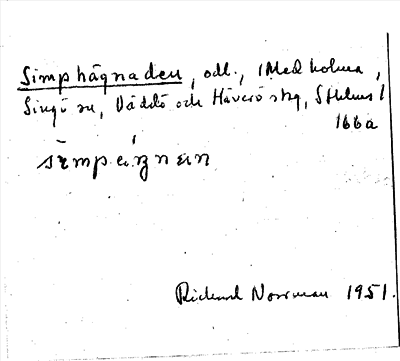 Simphägnaden, odl., Medholma,
Singö sn, Väddö och Häverö skg, Sthlms l
166a
Rickard Norrman 1951.